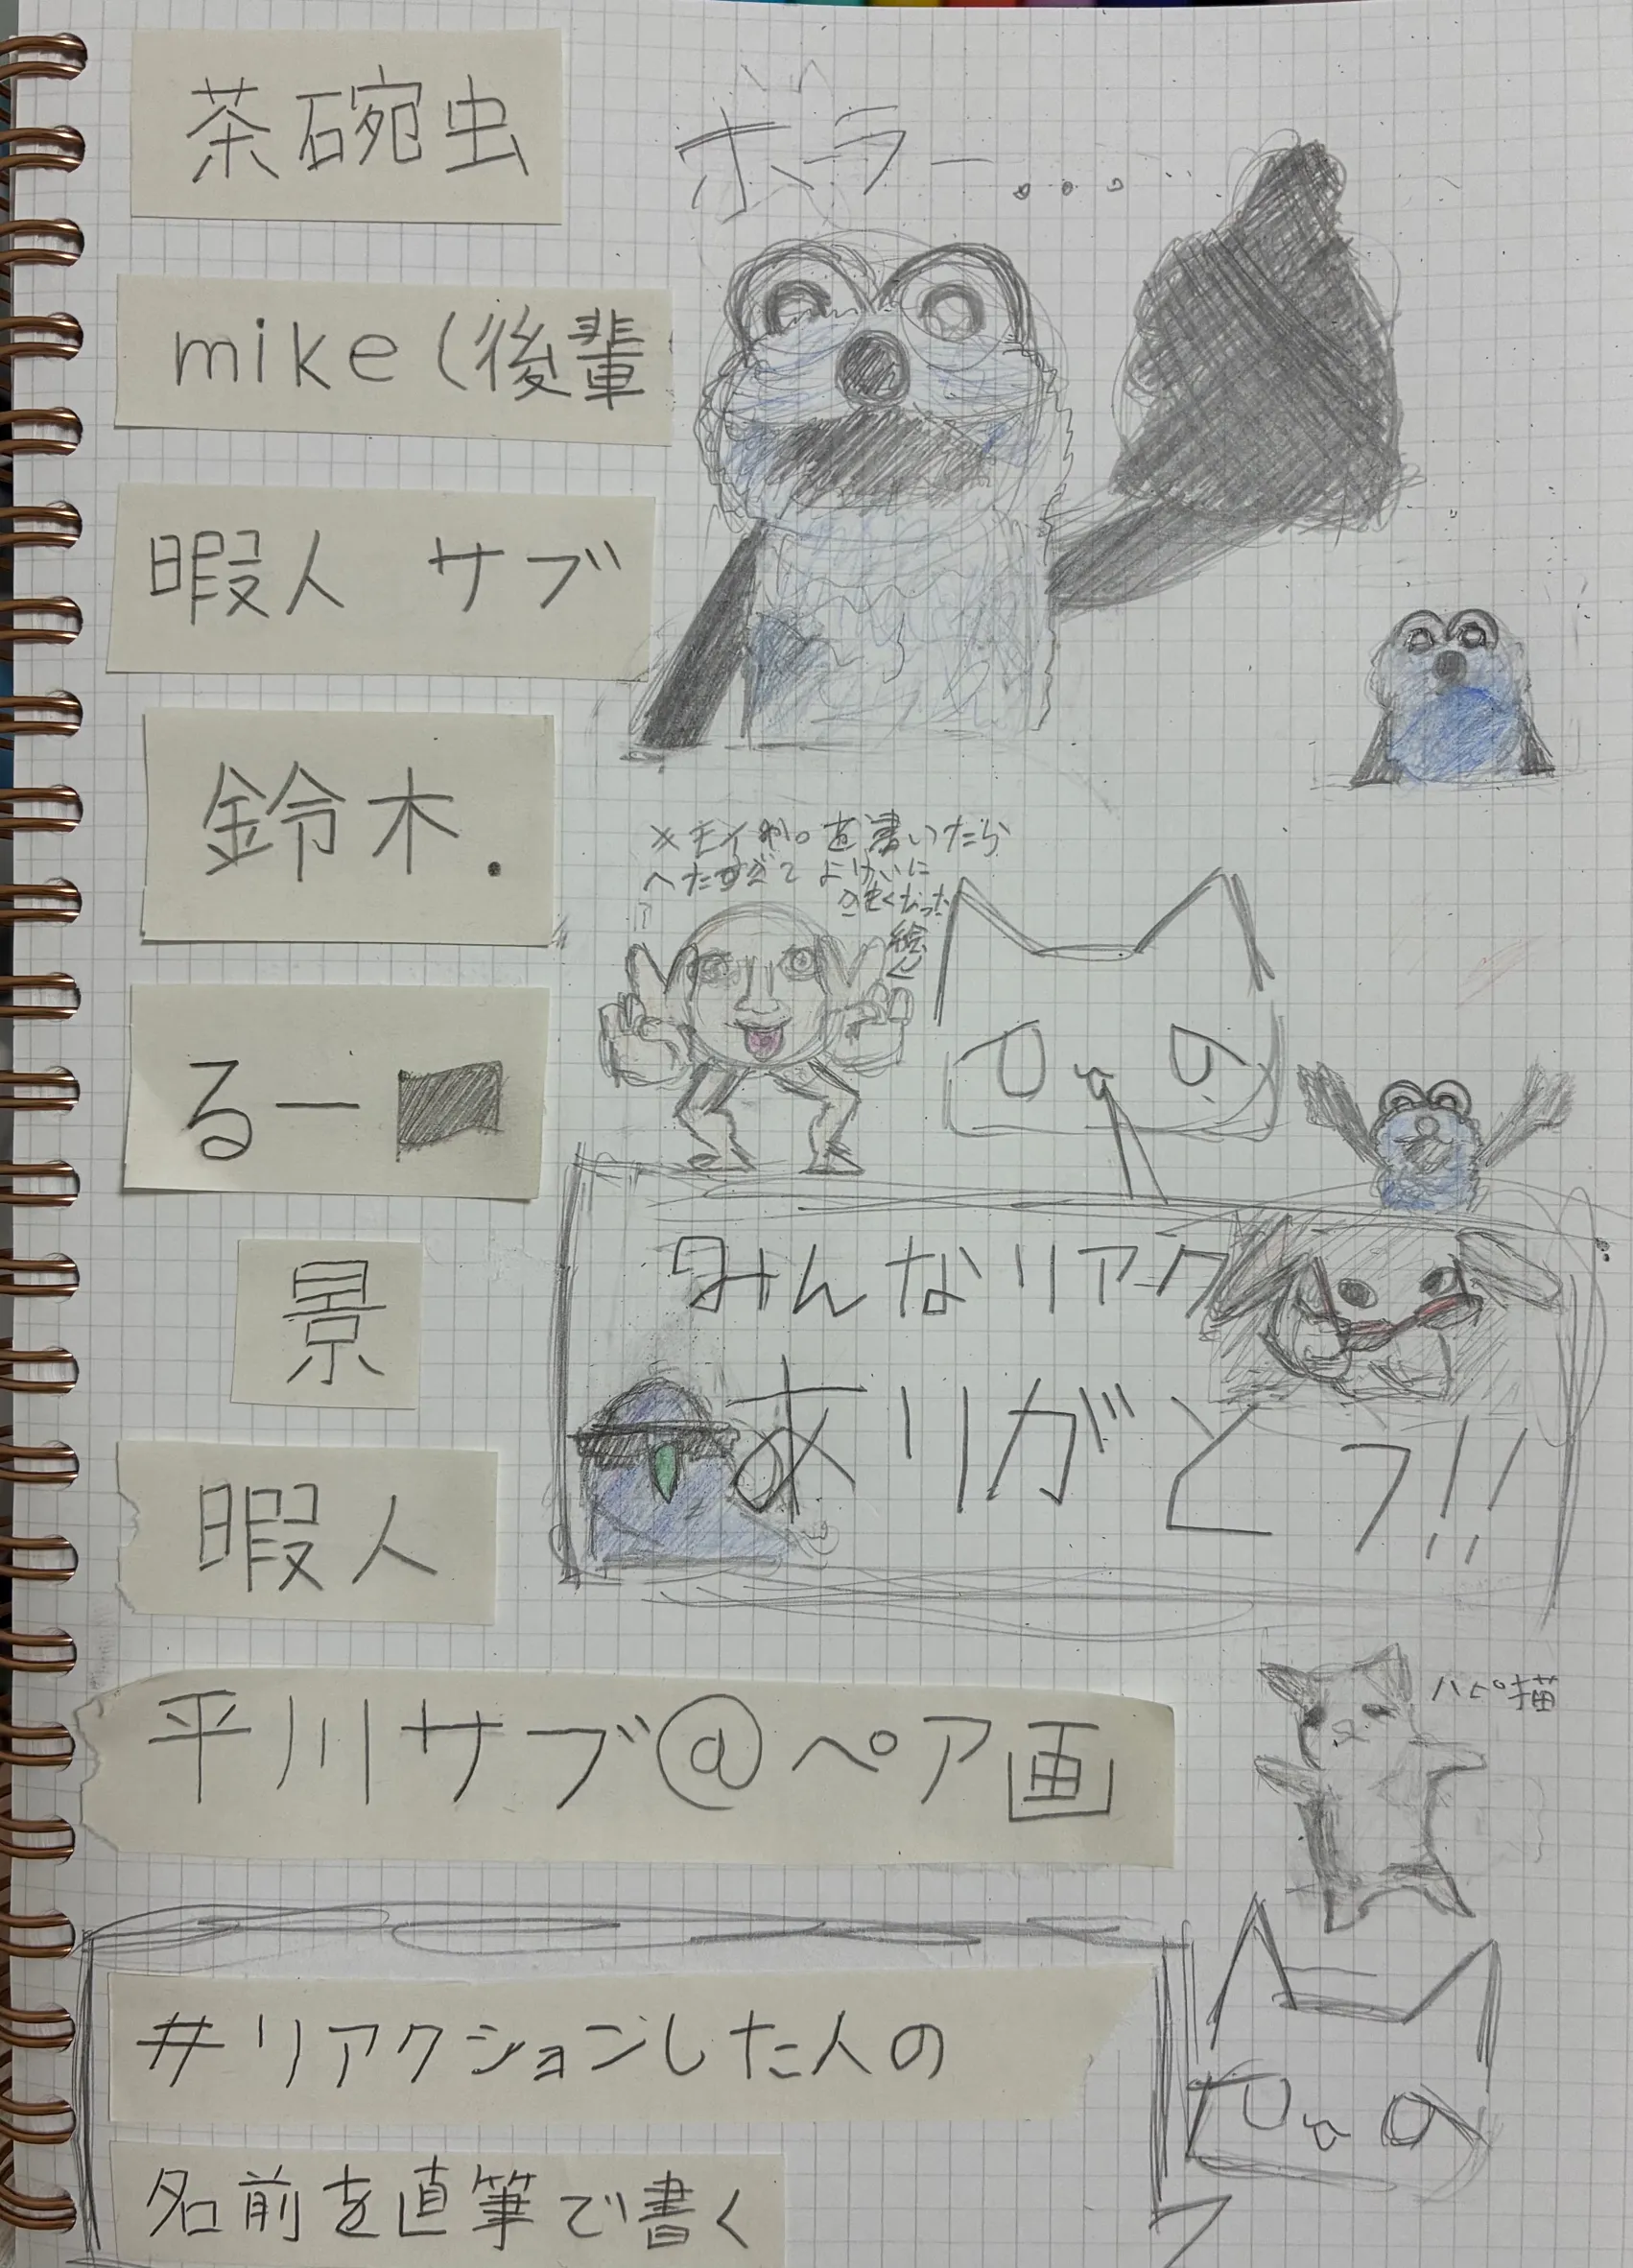 茶碗虫
ホラー...
mike(後輩
暇人 サブ
鈴木.
を書いたら
へたすぎてよけいに
絵
るー
景
みんなリアク
ありがとう!!
暇人
平川サブ@ペア画
ハピ猫
#リアクションした人の
名前を直筆で書く